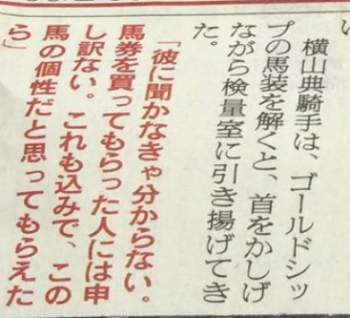 横山典騎手は、ゴールドシッ
プの馬装を解くと、首をかしげ
ながら検量室に引き揚げてき
た。
「彼に聞かなきゃ分からない。
馬券を買ってもらった人には申
し訳ない。これも込みで、この
馬の個性だと思ってもらえた
ら」